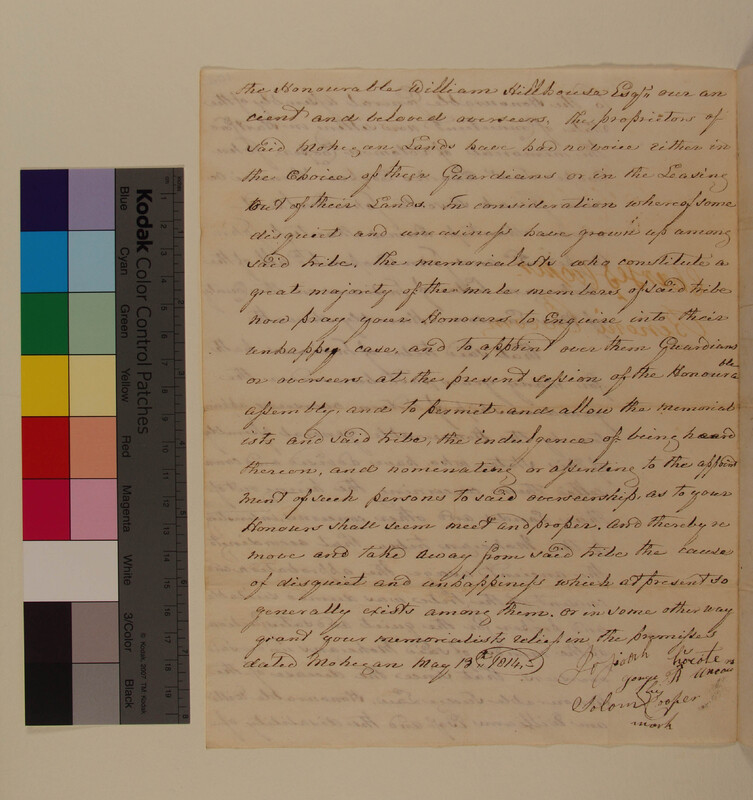 the Honourable William Hillhouse Esqr. our an
cient and beloved overseers, the proprietors of
said Mohegan Lands have had no voice either in
the Choice of their Guardians or in the Leasing
out of their Lands. In consideration whereof some
disquiet and uneasiness have grown up among
said tribe. the memorialists who constitute a
great majority of the male members of said tribe
now pray your Honours to Enquire into their
unhappy case, and to appoint over them Guardians
or overseers at the present session of the Honoura
ble
assembly, and to permit and allow the memorial
ists and said tribe, the indulgence of being heard
thereon, and nominating or assenting to the appoint
ment of such persons to said overseership, as to your
honours shall seem meet and proper. And thereby re
move and take away from said tribe the cause
of disquiet and unhappiness which at present so
generally exists among them. or in some other way
grant your memorialists relief in the premises
dated Mohegan May 13th 1814.
George Uncas
his
Solom Cooper
mark
Kodak Color Control Patches
Blue
Cyan
Green
Yellow
Red
Magenta
White
3/Color
Black
© Kodak, 2007 TM: Kodak
cm 1 2 3 4 5 6 7 8 9 10 11 12 13 14 15 16 17 18 19